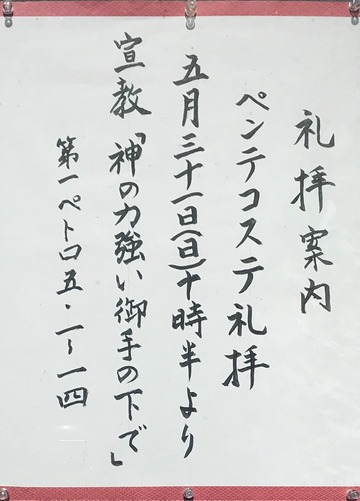 礼拝案内
ペンテコステ礼拝
五月三十一日(日)十時半より
宣教「神の力強い御手の下で」
第一ペトロ五・一～一四